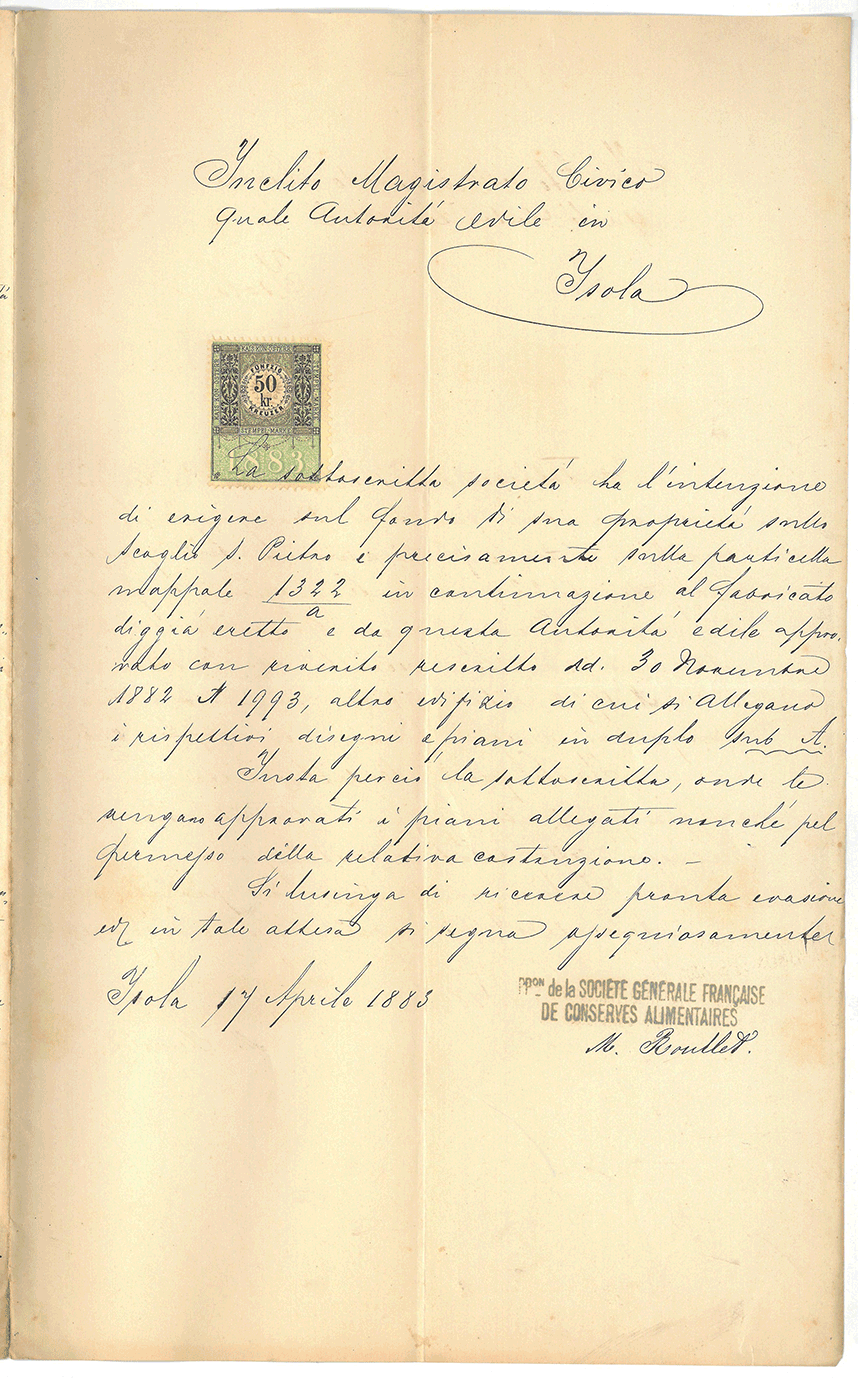 Inclito Magistrato Civico
quale Autoritá edile in
Isola
KAIS. KÖN. ÖSTERR.
FÜNFZIG
50
kr.
KREUZER
STEMPEL-MARKE
1883
La sottoscritta societá ha l'intenzione
di erigere sul fondo di sua proprietá sullo
Scoglio S. Pietro e precisamente sulla particella
mappale 1322/a in continuazione al fabricato
diggiá eretto e da questa Autoritá edile appro-
vato con riverito rescritto dd. 30 Novembre
1882 N 1993, altro edifizio di cui si allegano
i rispettivi disegni e piani in duplo sub A.
Insta perció la sottoscritta, onde le
vengano approvati i piani allegati nonché pel
permesso della relativa costruzione. –
Si lusinga di ricevere pronta evasione
ed in tale attesa si segna ossequiosamente
Isola 17 Aprile 1883
PPON de la SOCIÉTÉ GÉNÉRALE FRANÇAISE
DE CONSERVES ALIMENTAIRES
M. Roullet.